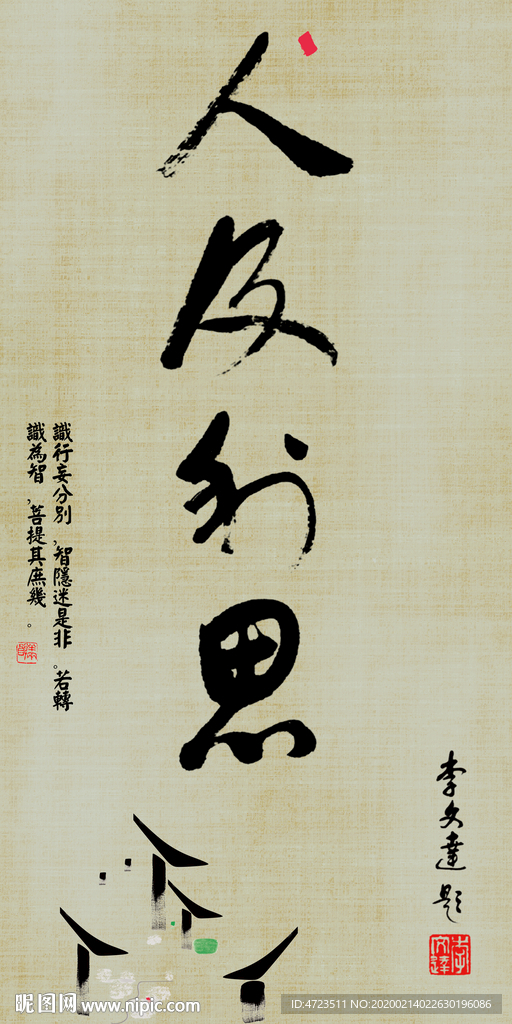 人及利思
識行妄分別，智隱迷是非。若轉
識為智，菩提其庶幾。
李文達題
李文達
昵图网 www.nipic.com
ID:4723511 NO:20200214022630196086